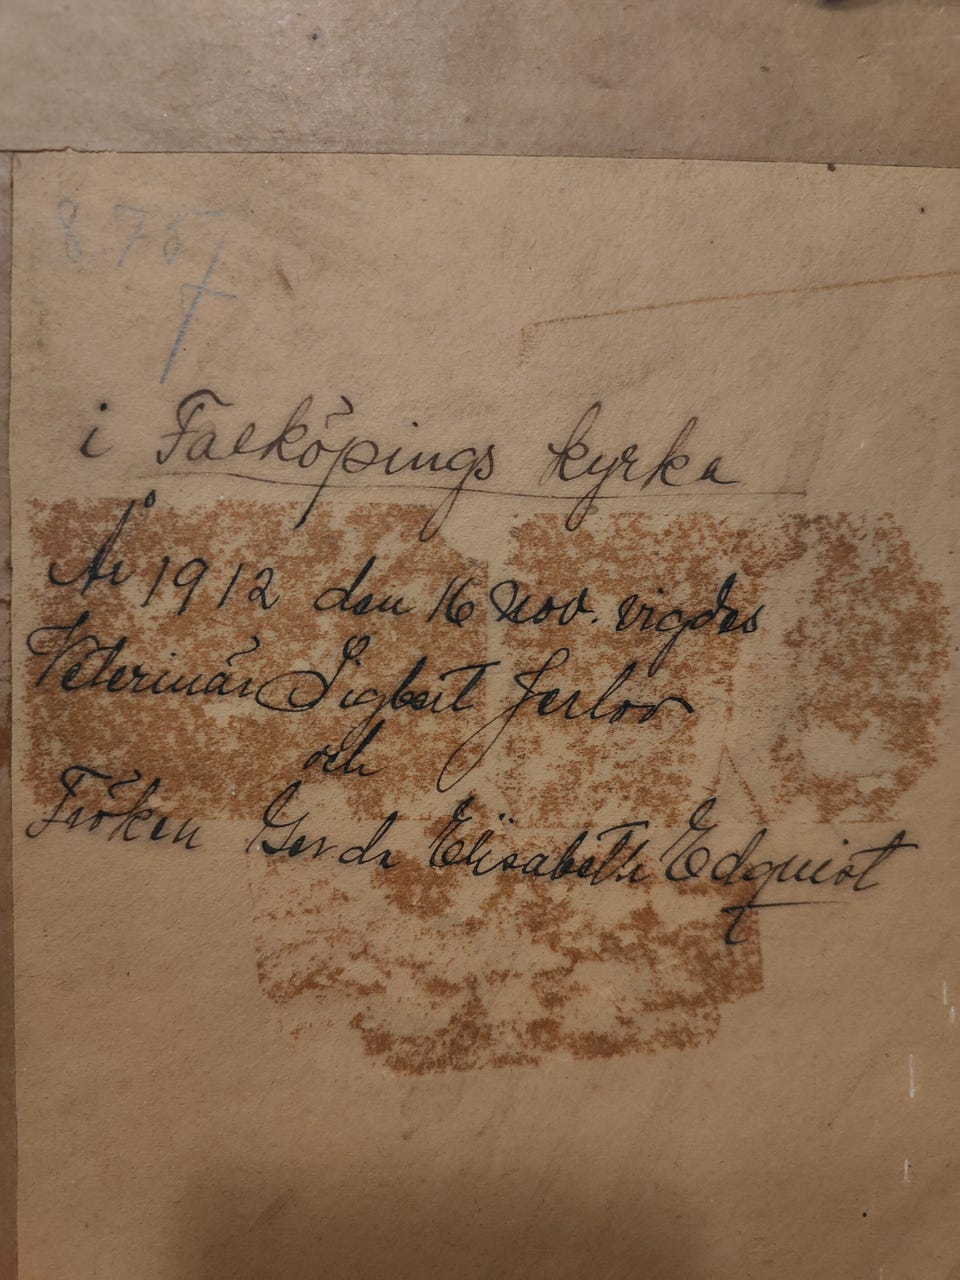 8.757
i Falköpings kyrka
År 1912 den 16 Nov. vigdes
Veterinär Sigbert Jerlov
och
Fröken Gerda Elisabeth Edquist